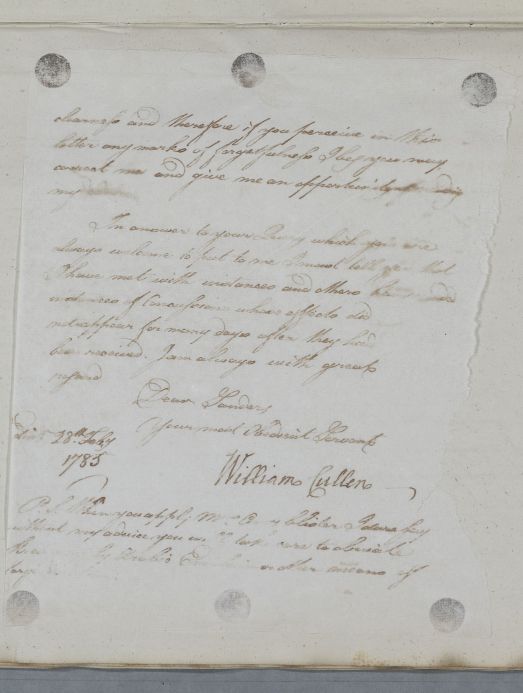 clearness and therefore if you perceive in this
letter any marks of forgetfulness I beg you may
correct me and give me an opportunity of
my
In answer to your Query which you are
always welcome to put to me I must tell you that
I have met with instances and others have
instances of Concussions whose effects did
not appear for many days after they had
been received. I am always with great
regard
Dear Sanders
Your most Obedient Servant
28th. Feby
1785
William Cullen
P.S. When you apply Mr. blister I dare say
without my advice you will take care to obviate
or other means of